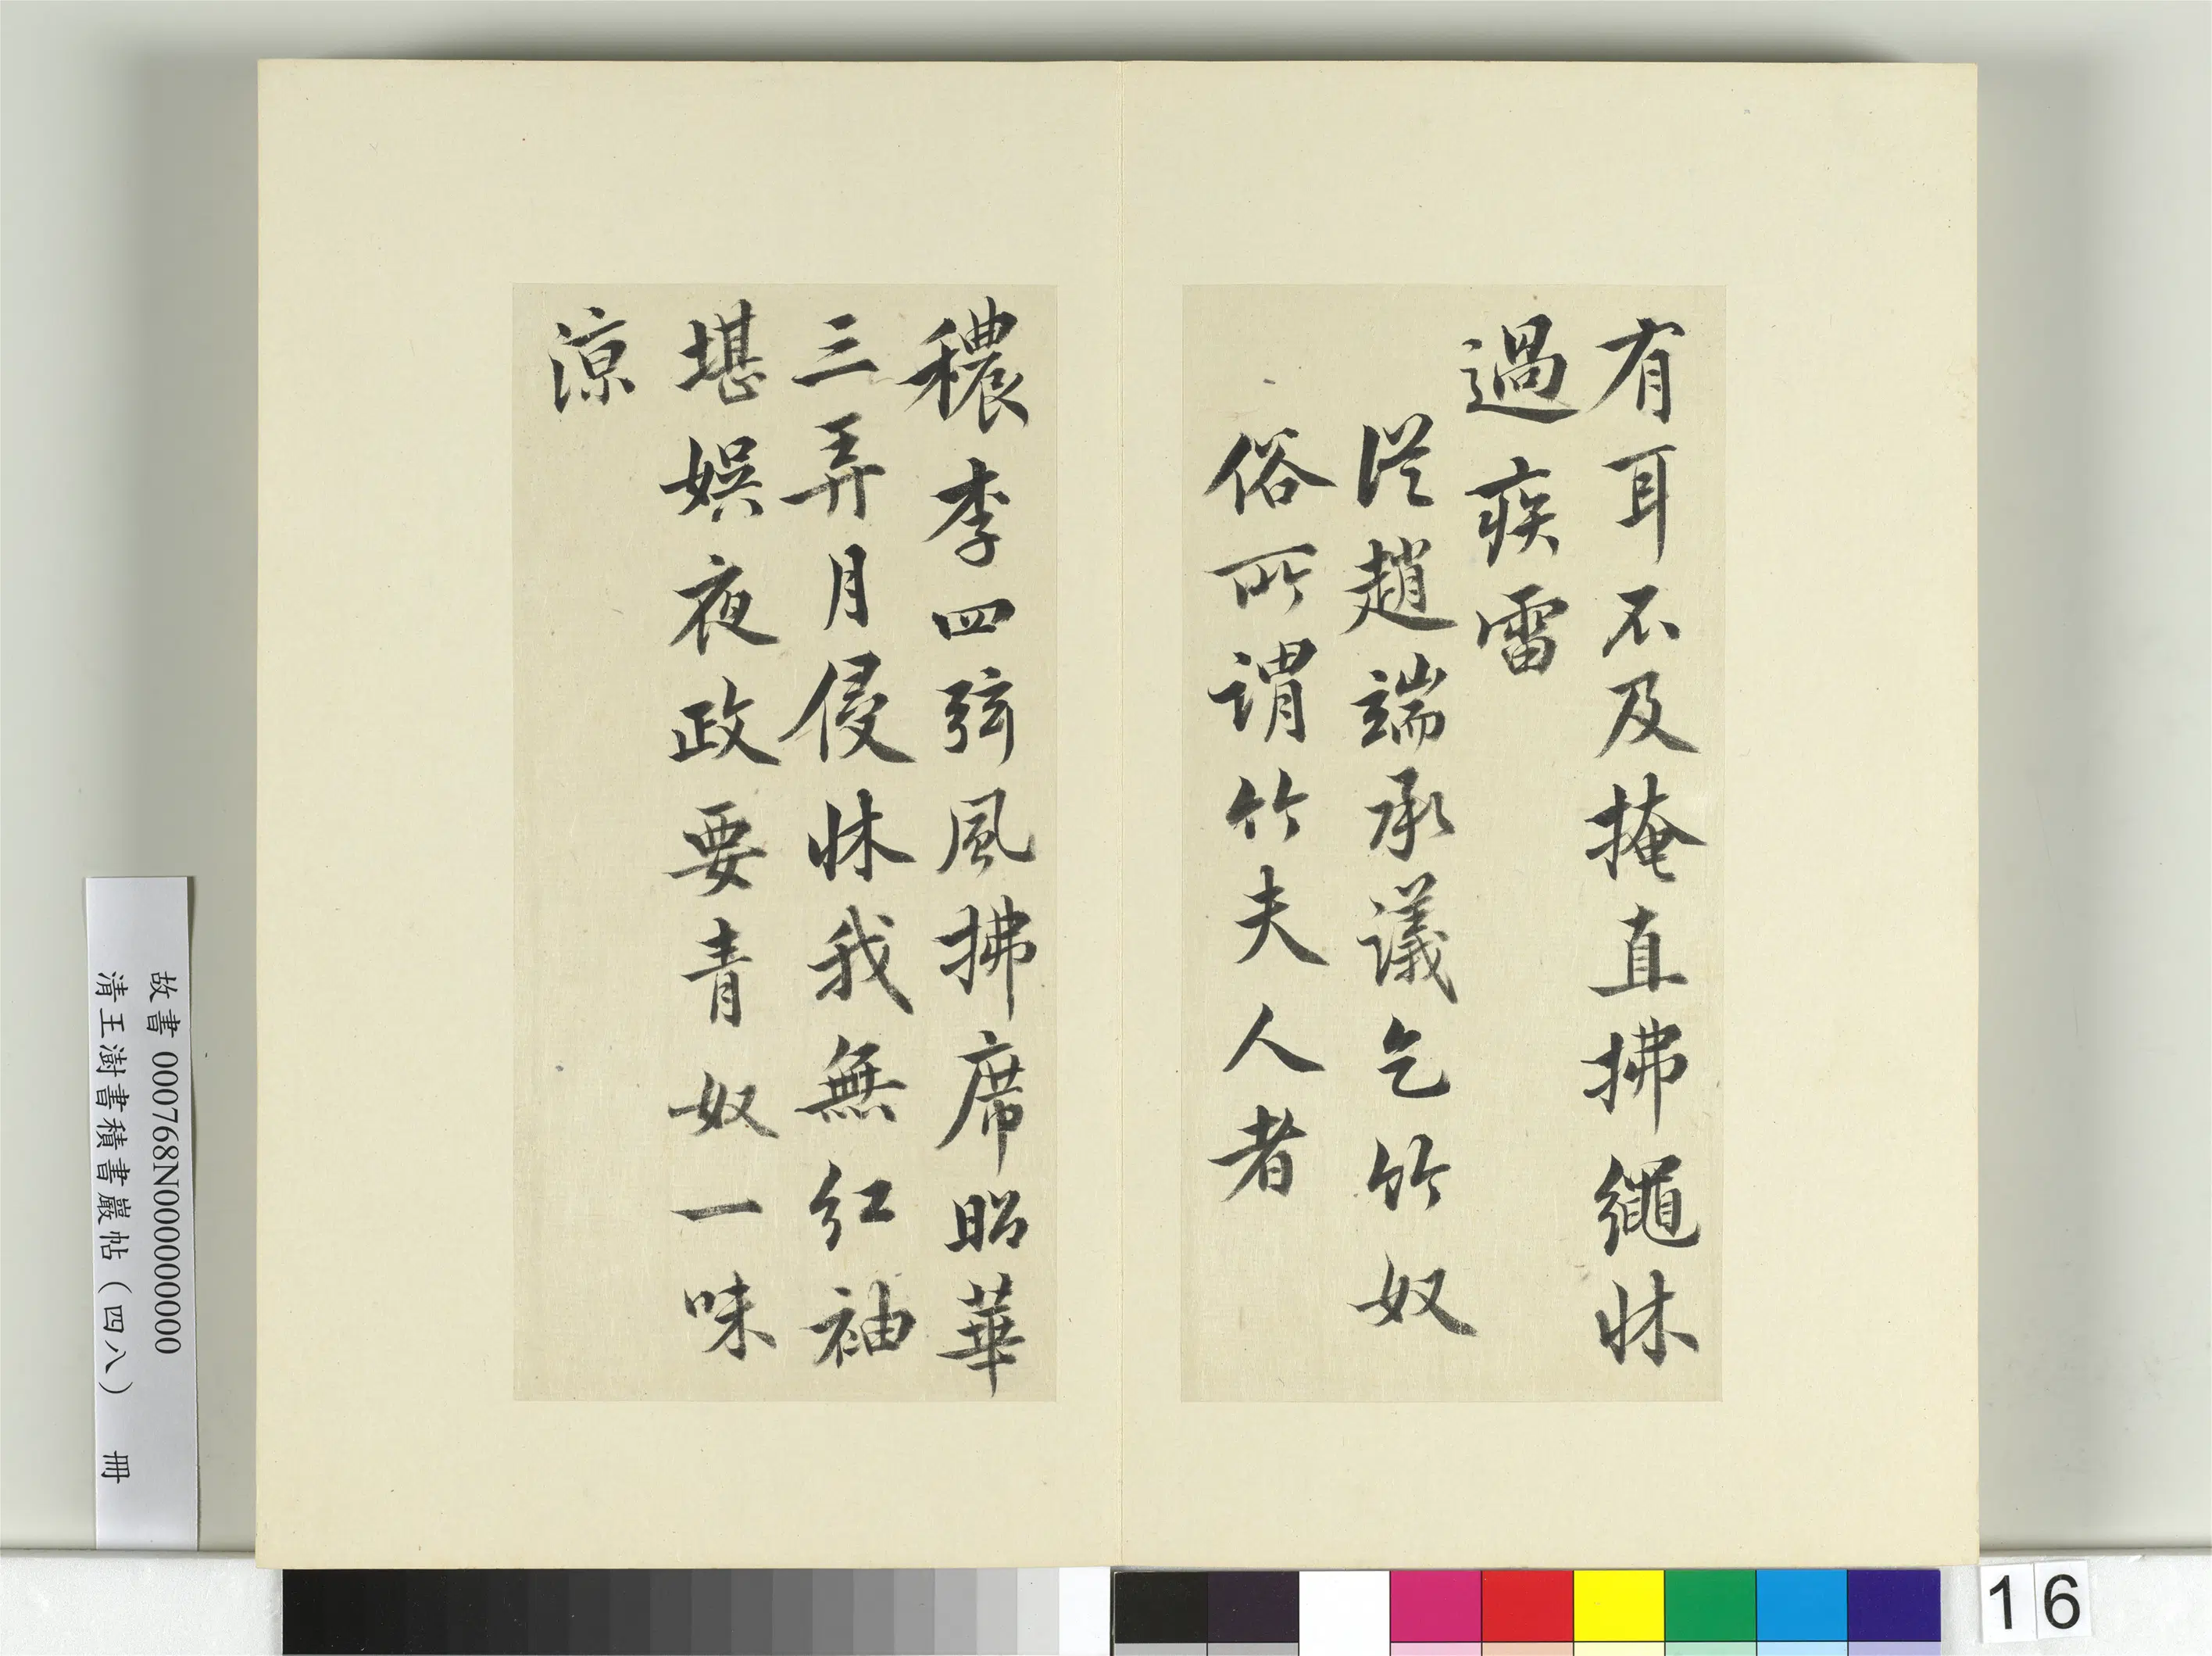 有耳不及掩直拂繩牀
過疾雷
從趙端承議乞竹奴
俗所謂竹夫人者
穠李四弦風拂席昭華
三弄月侵牀我無紅袖
堪娛夜政要青奴一味
涼
故書 000768N000000000
清王澍書積書巖帖（四八） 冊
16